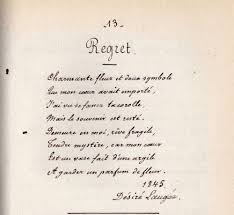 13.
Regret
Charmante fleur et doux symbole
Que mon cœur avait emporté,
J'ai vu se faner ta corolle
Mais le souvenir est resté.
Demeure en moi, rêve fragile,
Tendre mystère, car mon cœur
Est un vase fait d'une argile
A garder un parfum de fleur.
1845.
Désiré Laugée